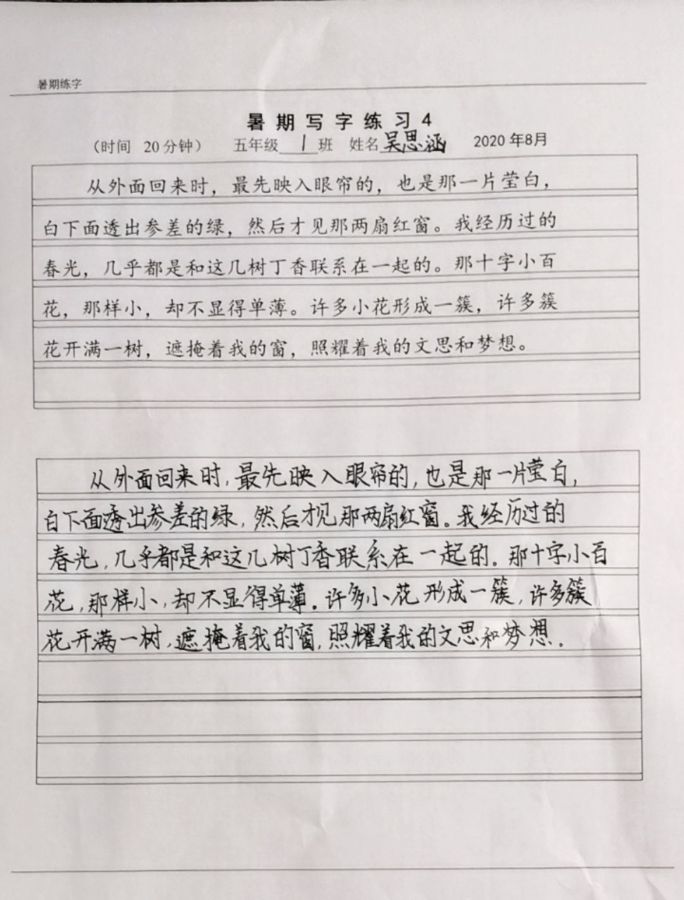 暑期练字
暑期写字练习4
（时间 20分钟） 五年级 1 班 姓名 吴思涵 2020年8月
从外面回来时，最先映入眼帘的，也是那一片莹白，
白下面透出参差的绿，然后才见那两扇红窗。我经历过的
春光，几乎都是和这几树丁香联系在一起的。那十字小百
花，那样小，却不显得单薄。许多小花形成一簇，许多簇
花开满一树，遮掩着我的窗，照耀着我的文思和梦想。
从外面回来时，最先映入眼帘的，也是那一片莹白，
白下面透出参差的绿，然后才见那两扇红窗。我经历过的
春光，几乎都是和这几树丁香联系在一起的。那十字小百
花，那样小，却不显得单薄。许多小花形成一簇，许多簇
花开满一树，遮掩着我的窗，照耀着我的文思和梦想。